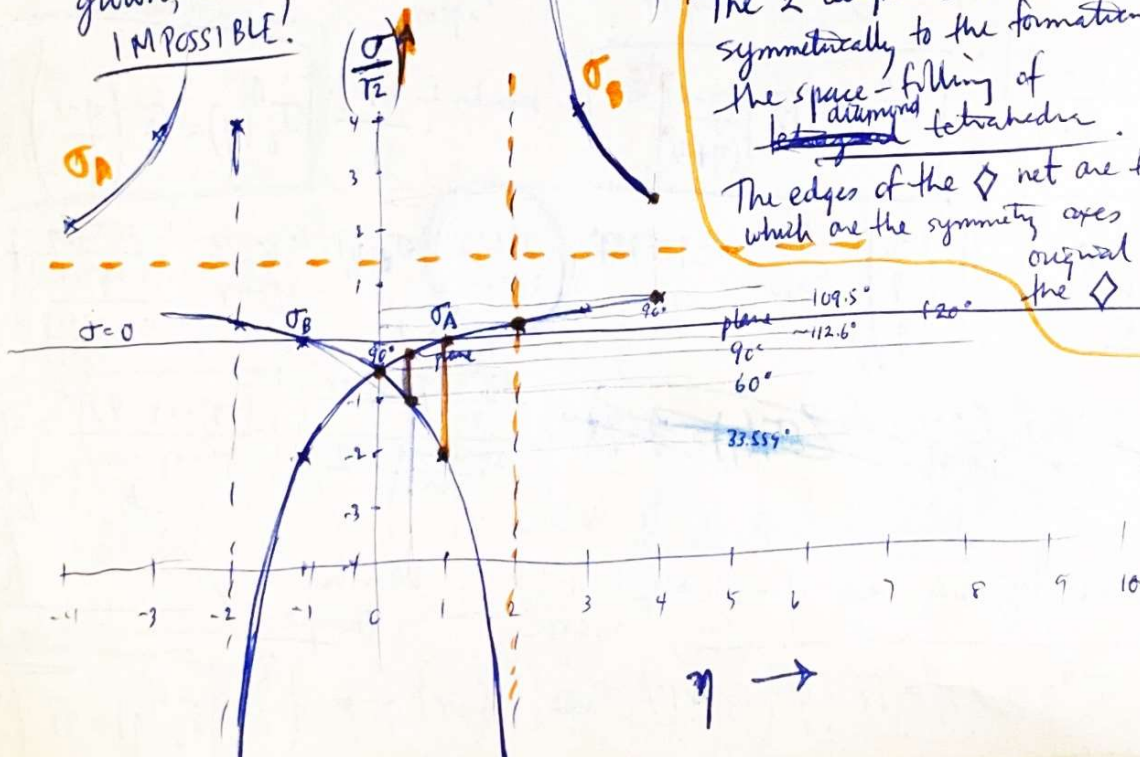 IMPOSSIBLE!
The 2
symmetrically to the formation
the space-filling of
diamond
tetrahedra.
The edges of the ◇ net are
which are the symmetry axes
original
the ◇
σ/√2
σA
σB
4
3
1
1
σ=0
σB
σA
90°
plane
96°
109.5°
plane
120°
~112.6°
90°
60°
33.559°
-1
-2
-3
-4
-4 -3 -2 -1 0 1 2 3 4 5 6 7 8 9 10
η →